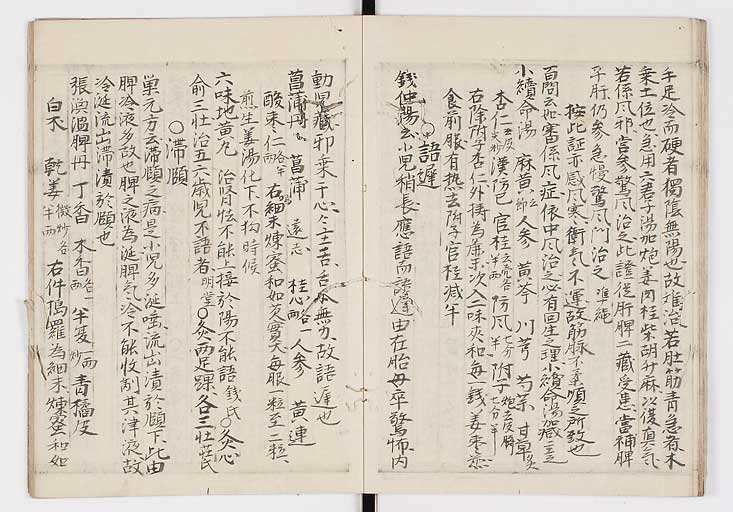 手足冷而硬者獨陰無陽也故難治若肚筋青急者木
乘土位也急用六君子湯加炮姜肉桂柴胡升麻以復真氣
若係風邪當參驚風治之此證從肝脾二藏受患當補脾
平肝仍參急慢驚風門治之 準繩
按此証亦感風寒衛氣不運故筋脉不順之所致也
百問云如審係風症依中風治之必有回生之理小續命湯加減主之
小續命湯 麻黃 去節 人參 黃芩 川芎 芍藥 甘草 炙
杏仁 去皮尖炒 漢防己 官桂 去皮各半兩 防風 七分半 附子 炮去皮臍七分半
右除附子杏仁外擣為麁末次入二味夾和每一錢姜棗煎
食前服有熱去附子官桂減半
○語遲
錢仲陽云小兒稍長應語而語遲由在胎母卒驚怖內
動兒藏邪乘于心心主舌舌本無力故語遲也
菖蒲丹 菖蒲 遠志 桂心 各一兩 人參 黃連
酸棗仁 各半兩 右細末煉蜜和如芡實大每服一粒至二粒
煎生姜湯化下不拘時候
六味地黃丸 治腎怯不能上接於陽不能語 錢氏 ○灸心
俞三壯治五六歲兒不語者 明堂 ○灸兩足踝各三壯 莊氏
○滯頤
巢元方云滯頤之病是小兒多涎唾流出漬於頤下此由
脾冷液多故也脾之液為涎脾氣冷不能收制其津液故
冷涎流出滯漬於頤也
張渙溫脾丹 丁香 木香 各一兩 半夏 一兩炒 青橘皮
白朮 乾姜 微炒各半兩 右件擣羅為細末煉蜜和如